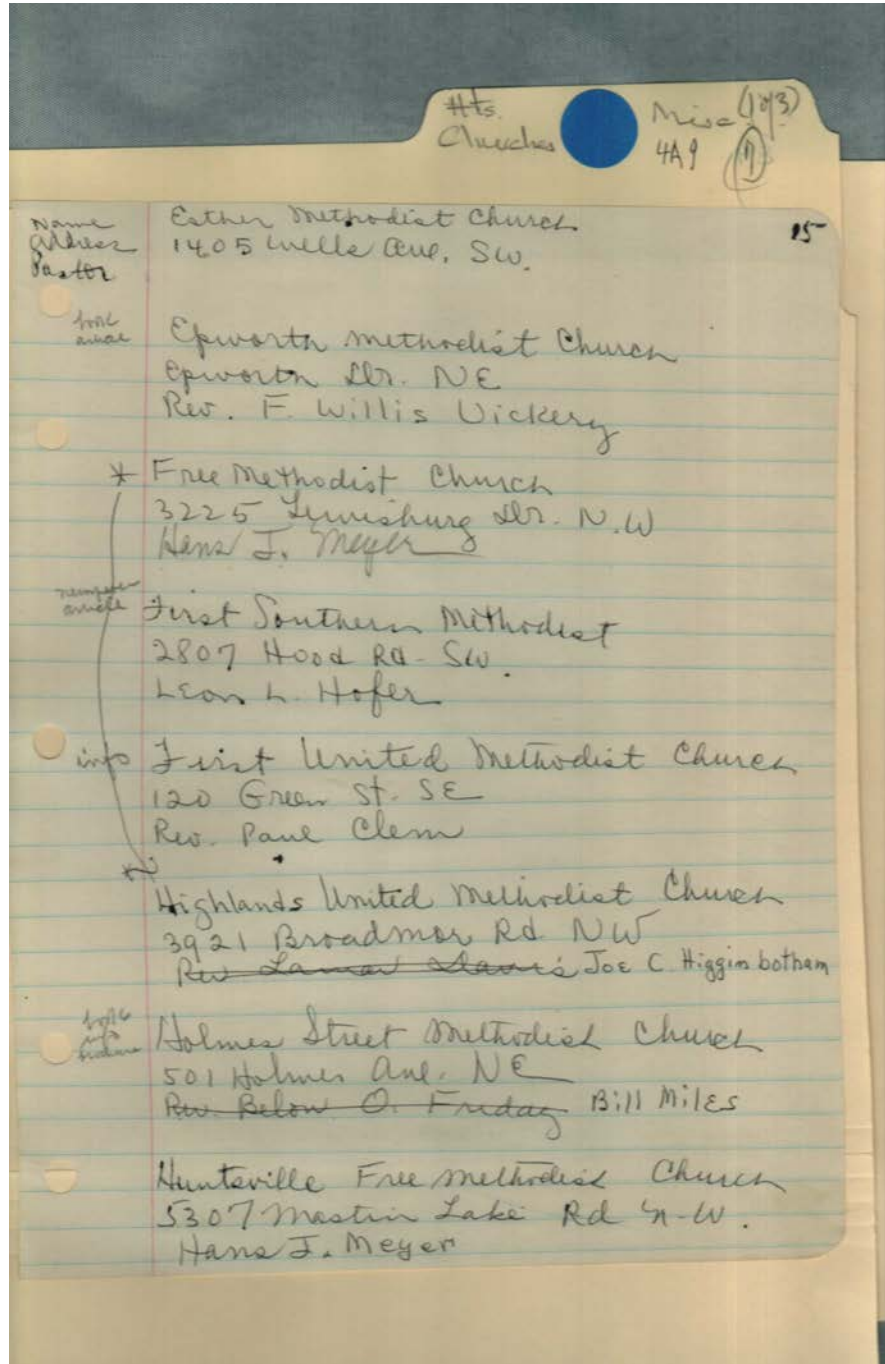 Hts. Misc (1 of 3)
Churches 4A9 (7)
Name Esther Methodist Church 15
Address 1405 Wells Ave. SW.
Pastor
Epworth Methodist Church
Epworth Dr. NE
Rev. F. Willis Vickery
* Free Methodist Church
3225 Lewisburg Dr. N.W
Hans J. Meyer
newspaper
article First Southern Methodist
2807 Hood Rd - SW.
Leon L. Hofer
info First United Methodist Church
120 Green St. SE
Rev. Paul Clem
*
Highlands United Methodist Church
3921 Broadmor Rd NW
Rev Lamar Davis Joe C. Higginbotham
Holmes Street Methodist Church
501 Holmes Ave. NE
Rev. Below O. Friday Bill Miles
Huntsville Free Methodist Church
5307 Mastin Lake Rd N-W.
Hans J. Meyer